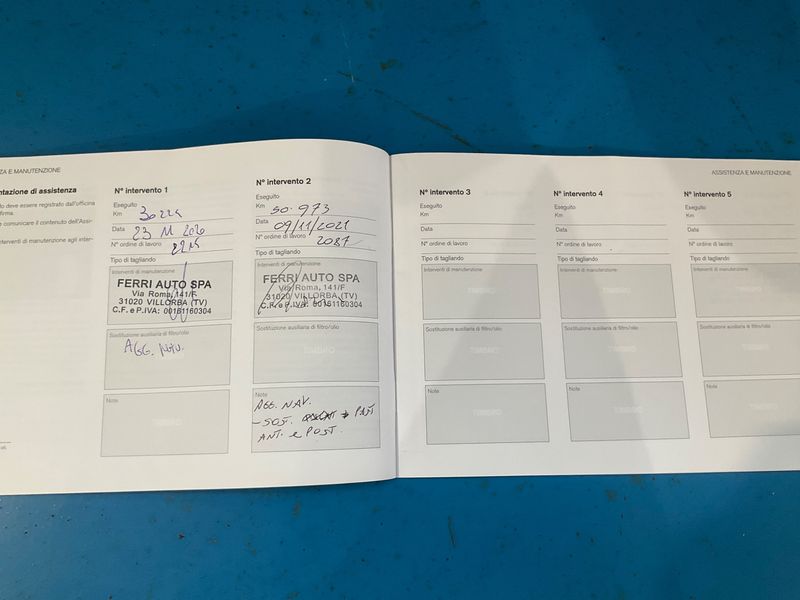 ZA E MANUTENZIONE
ntazione di assistenza
to deve essere registrato dall'officina
firma.
e comunicare il contenuto dell'Assi-
interventi di manutenzione agli inter-
N° intervento 1
Eseguito
Km 30224
Data 23 11 2020
N° ordine di lavoro 2215
Tipo di tagliando
Interventi di manutenzione
FERRI AUTO SPA
Via Roma, 141/F
31020 VILLORBA (TV)
C.F. e P.IVA: 00161160304
Sostituzione ausiliaria di filtro/olio
AGG.
Note
N° intervento 2
Eseguito
Km 50.973
Data 09/11/2021
N° ordine di lavoro 2087
Tipo di tagliando
Interventi di manutenzione
FERRI AUTO SPA
Via Roma, 141/F
31020 VILLORBA (TV)
C.F. e P.IVA: 00161160304
Sostituzione ausiliaria di filtro/olio
TIMBRO
Note
AGG. NAV.
- SOST. PAST
ANT. e POST.
ASSISTENZA E MANUTENZIONE
N° intervento 3
Eseguito
Km
Data
N° ordine di lavoro
Tipo di tagliando
Interventi di manutenzione
TIMBRO
Sostituzione ausiliaria di filtro/olio
TIMBRO
Note
TIMBRO
N° intervento 4
Eseguito
Km
Data
N° ordine di lavoro
Tipo di tagliando
Interventi di manutenzione
TIMBRO
Sostituzione ausiliaria di filtro/olio
TIMBRO
Note
TIMBRO
N° intervento 5
Eseguito
Km
Data
N° ordine di lavoro
Tipo di tagliando
Interventi di manutenzione
TIMBRO
Sostituzione ausiliaria di filtro/olio
TIMBRO
Note
TIMBRO